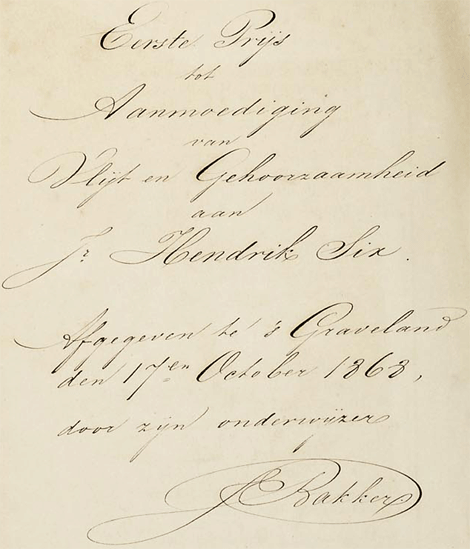 Eerste Prijs
tot
Aanmoediging
van
Vlijt en Gehoorzaamheid
aan
Jr. Hendrik Six.
Afgegeven te 's Graveland
den 17en October 1868,
door zijn onderwijzer
Bakker